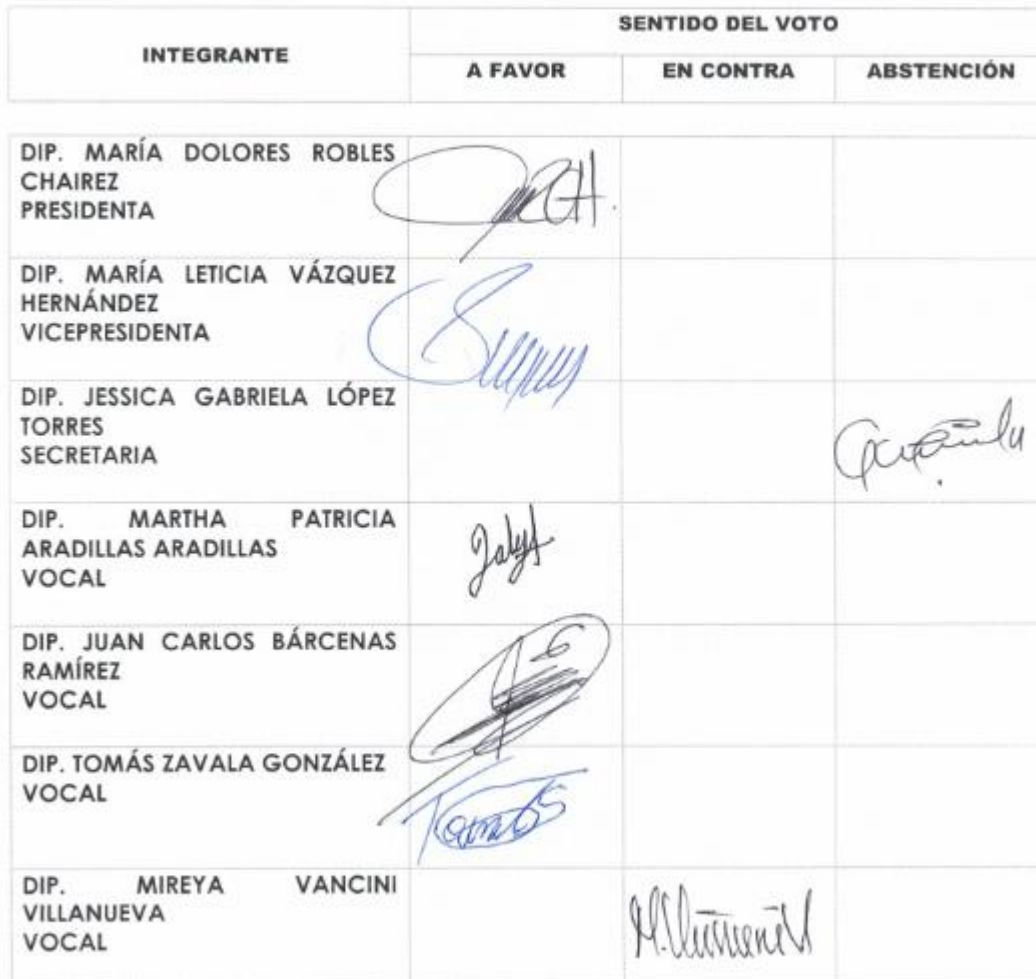 SENTIDO DEL VOTO
INTEGRANTE
A FAVOR EN CONTRA ABSTENCIÓN
DIP. MARÍA DOLORES ROBLES
CHAIREZ
PRESIDENTA
DIP. MARÍA LETICIA VÁZQUEZ
HERNÁNDEZ
VICEPRESIDENTA
DIP. JESSICA GABRIELA LÓPEZ
TORRES
SECRETARIA
DIP. MARTHA PATRICIA
ARADILLAS ARADILLAS
VOCAL
DIP. JUAN CARLOS BÁRCENAS
RAMÍREZ
VOCAL
DIP. TOMÁS ZAVALA GONZÁLEZ
VOCAL
DIP. MIREYA VANCINI
VILLANUEVA
VOCAL